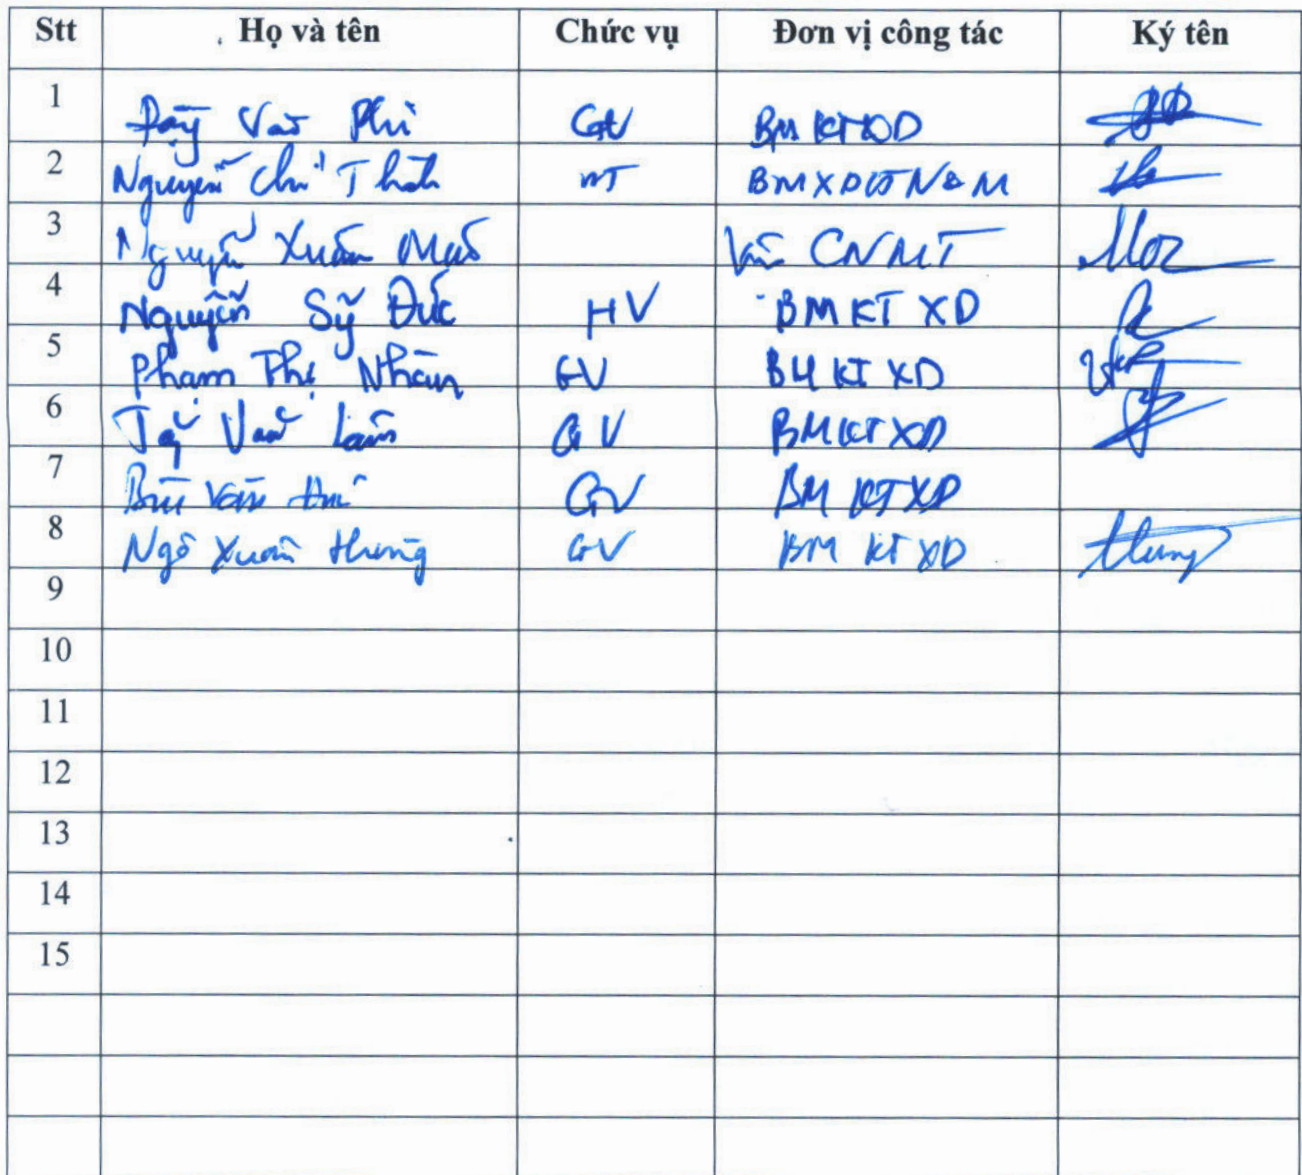 Stt Họ và tên Chức vụ Đơn vị công tác Ký tên
1 Đặng Văn Phi GV BM KTXD
2 Nguyễn Chí Thành
3 Nguyễn Xuân Viện CNMT
4 Nguyễn Sỹ Đức HV BM KT XD
5 Phạm Thị Nhàn GV BM KT XD
6 Tạ Văn Lâm GV BM KT XD
7 Bùi Văn GV BM KT XD
8 Ngô Xuân Hùng GV BM KT XD Hung
9
10
11
12
13
14
15